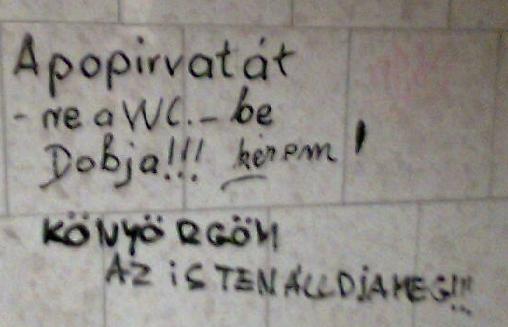 Apopirvatát
- ne a WC.- be
Dobja!!! kérem!
KÖNYÖRGÖM
AZ iSTEN ÁLLDJAMEG!!!